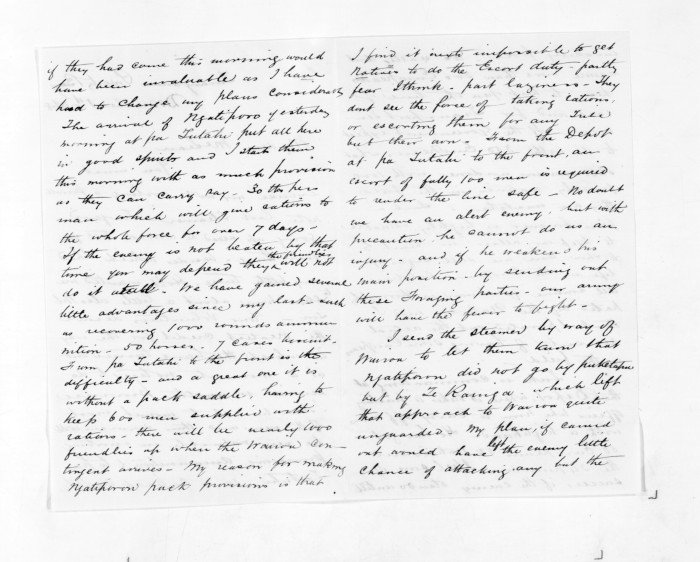 if they had come this morning would
have been invaluable as I have
had to change my plans considerably
The arrival of Ngatiporo yesterday
morning at pa Tutahi put all here
in good spirits and I start them
this morning with as much provision
as they can carry say - 30 lbs per
man which will give rations to
the whole force for over 7 days -
If the enemy is not beaten by that
time you may depend they the friendlies will not
do it atall. We have gained several
little advantages since my last - such
as recovering 1000 rounds ammu-
nition - 50 horses. 7 cases biscuit.
From pa Tutahi to the front is the
difficulty - and a great one it is
without a pack saddle, having to
keep 600 men supplied with
rations - there will be nearly 1000
friendlies up when the Wairoa Con-
tingent arrives - My reason for making
Ngatiporou pack provisions is that
I find it next impossible to get
Natives to do the Escort duty - partly
fear I think - part laziness - They
dont see the force of taking rations
or escorting them for any Tribe
but their own - From the Depot
at pa Tutahi to the front, an
escort of fully 100 men is required
to render the line safe - No doubt
we have an alert enemy, but with
precaution he cannot do us an
injury - and if he weakens his
main position - by sending out
these Foraging parties - our army
will have the fewer to fight -
I send the steamer by way of
Wairoa to let them know that
Ngatiporou did not go by puketapu
but by Te Kainga which left
that approach to Wairoa quite
unguarded - My plan, if carried
out would have left the enemy little
Chance of attacking any but the